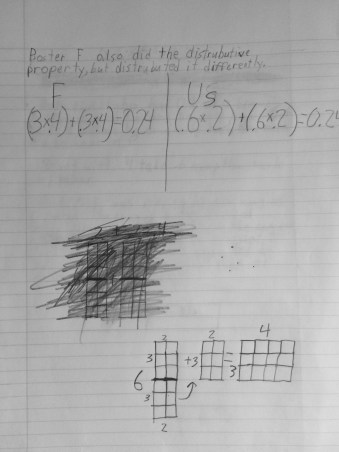 Poster F also did the distrubutive
property, but distrubuted it differently.
F
Us
(.3x.4)+(.3x.4)=0.24
(.6x.2)+(.6x.2)=0.24
2
2
4
3
+3
=
3
6
3
2